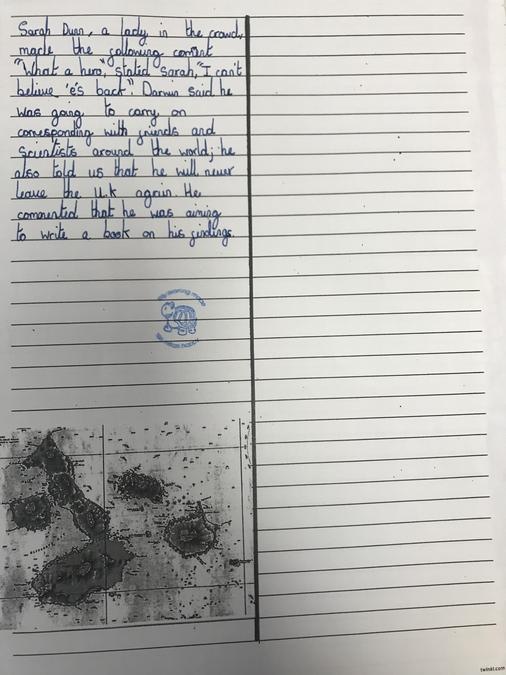 Sarah Dunn, a lady in the crowd,
made the following comment
"What a hero", stated Sarah, "I can't
believe 'e's back". Darwin said he
was going to carry on
corresponding with friends and
Scientists around the world; he
also told us that he will never
leave the U.K again. He
commented that he was aiming
to write a book on his findings.
twinkl.com